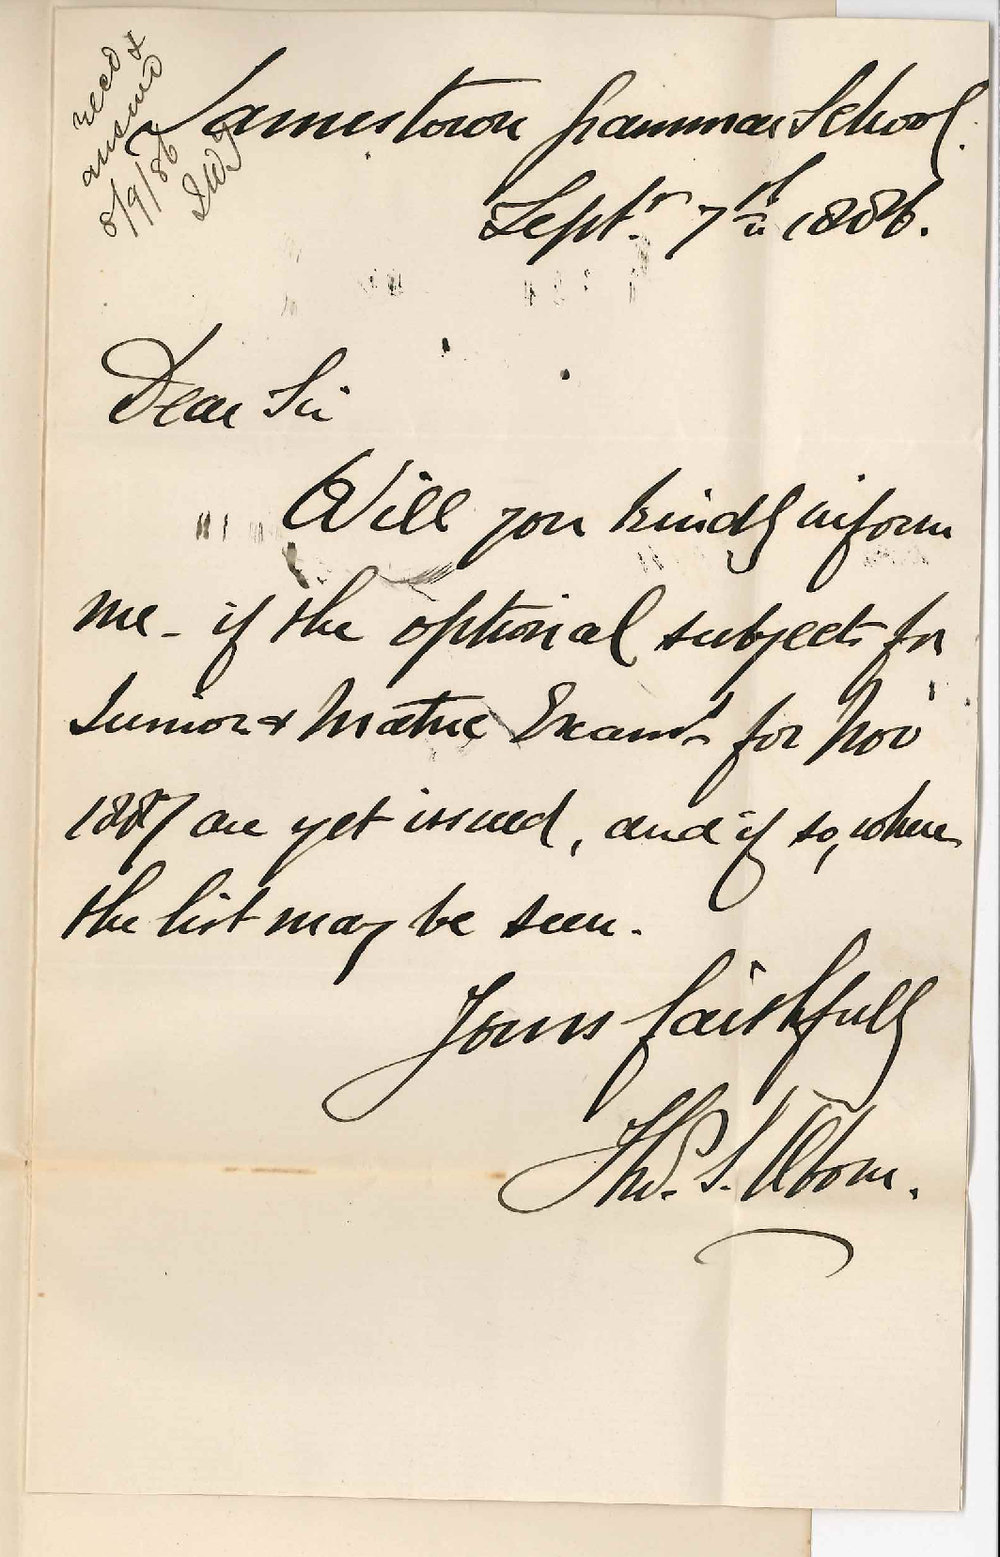 recd &
answd
8/9/86
Jamestown Grammar School.
Septr. 7th 1886.
Dear Sir
Will you kindly inform
me - if the optional subjects for
Junior & Matric Exams for Nov
1887 are yet issued, and if so, where
the list may be seen.
Yours faithfully
Thos. S.